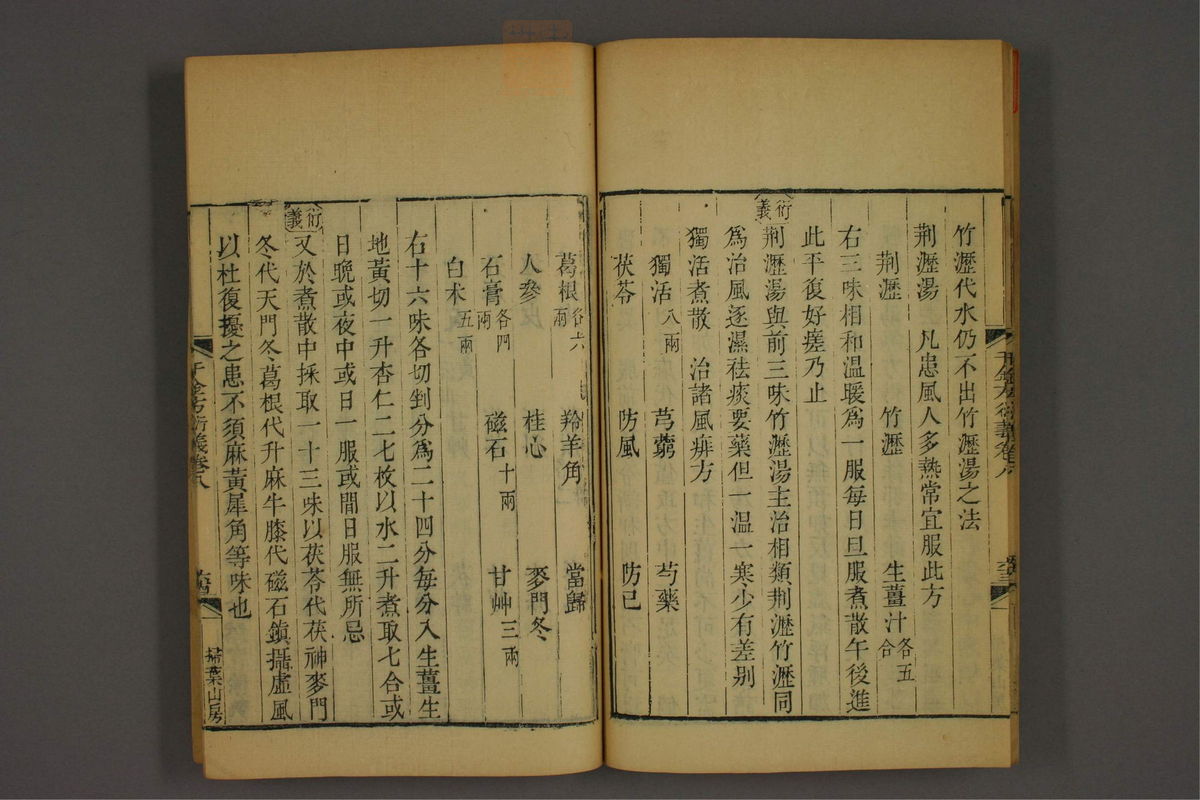 竹瀝代水仍不出竹瀝湯之法
荆瀝湯　凡患風人多熱常宜服此方
荆瀝　竹瀝　生薑汁各五合
右三味相和溫暖為一服每日旦服煮散午後進
此平復好瘥乃止
衍義
荆瀝湯與前三味竹瀝湯主治相類荆瀝竹瀝同
為治風逐濕祛痰要藥但一溫一寒少有差别
獨活煮散　治諸風痱方
獨活八兩　芎藭　芍藥
茯苓　防風　防己
葛根各六兩　羚羊角　當歸
人參　桂心　麥門冬
石膏各四兩　磁石十兩　甘艸三兩
白朮五兩
右十六味各切剉分為二十四分每分入生薑生
地黃切一升杏仁二七枚以水二升煮取七合或
日晚或夜中或日一服或間日服無所忌
衍義
又於煮散中採取一十三味以茯苓代茯神麥門
冬代天門冬葛根代升麻牛膝代磁石鎮攝虛風
以杜復擾之患不須麻黃犀角等味也
千金方衍義卷八
掃葉山房